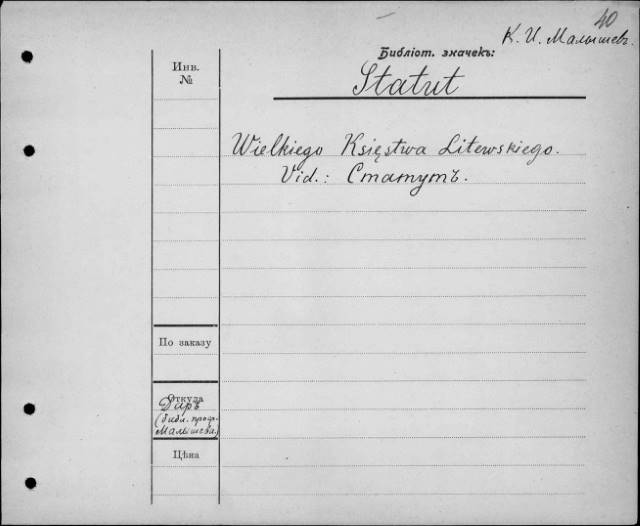 40
К. И. Малышевъ.
Библіот. значекъ:
Инв.
№
Statut
Wielkiego Księstwa Litewskiego.
Vid.: Статутъ.
По заказу
Откуда
Даръ
(библ. проф.
Малышева)
Цѣна